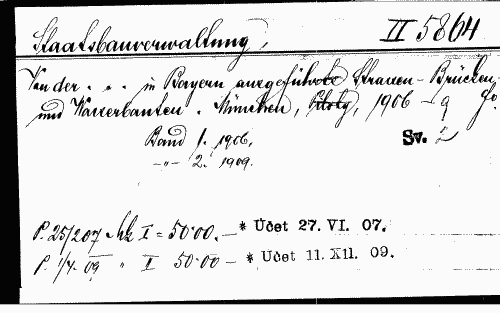 Staatsbauverwaltung, II 5864
Von der . . . in Bayern ausgeführte Strassen-Brücken-
und Wasserbauten. München, Piloty, 1906-9 fo
Band 1. 1906. Sv. 2
-"- 2. 1909.
P. 25/207 I = 50·00. - * Účet 27. VI. 07.
P. 1/4. 09 " I 50·00 - * Účet 11. XII. 09.